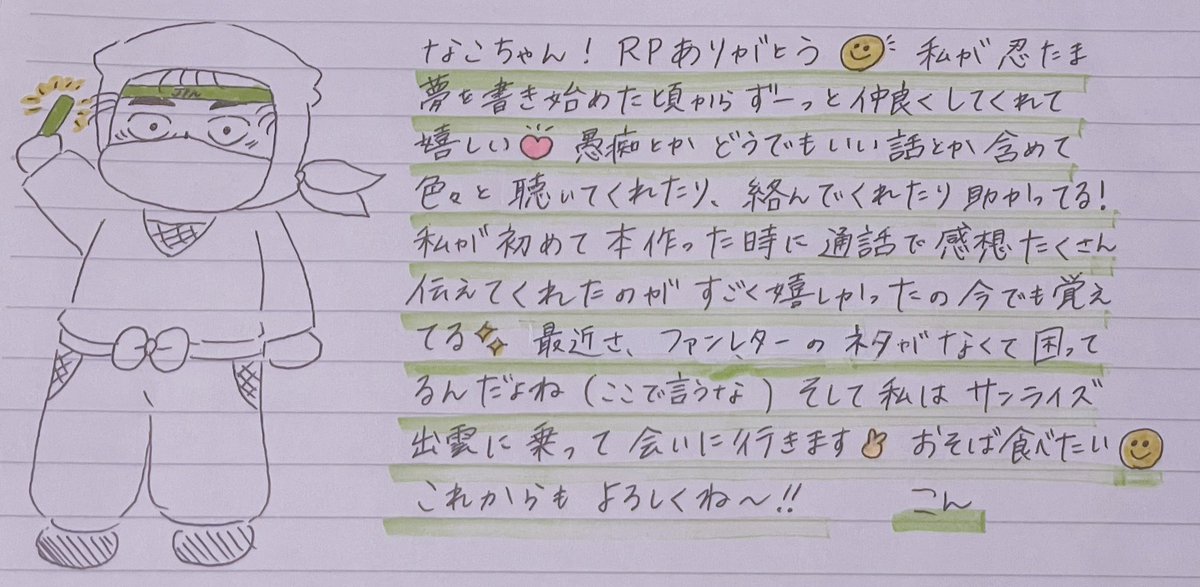 なこちゃん! RPありがとう 私が忍たま
夢を書き始めた頃からずーっと仲良くしてくれて
嬉しい 愚痴とか どうでもいい話とか含めて
色々と聴いてくれたり、絡んでくれたり助かってる!
私が初めて本作った時に通話で感想たくさん
伝えてくれたのがすごく嬉しかったの今でも覚え
てる 最近さ、ファンレターのネタがなくて困って
るんだよね (ここで言うな) そして私はサンライズ
出雲に乗って会いに行きます おそば食べたい
これからもよろしくね〜!!
こん